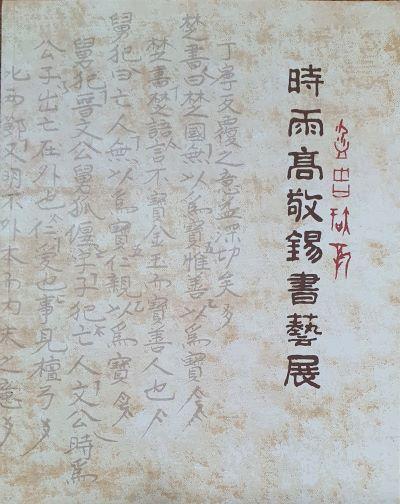 時雨髙敬錫書藝展
丁寧反覆之意益深切矣
楚書曰楚國無以爲寶惟善以爲寶
楚書楚語言不寶金玉而寶善人也
舅犯曰亡人無以爲寶仁親以爲寶
舅犯晉文公舅狐偃字子犯亡人文公時爲
公子出亡在外也仁也事見檀弓
此兩節又明不外本而内末之意